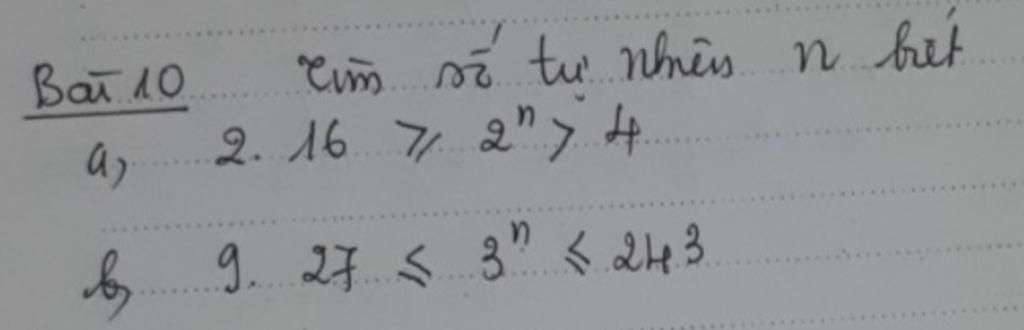 Bài 10 Tìm số tự nhiên n biết
a, 2. 16 ⩾ 2ⁿ > 4
b, 9. 27 ⩽ 3ⁿ ⩽ 243